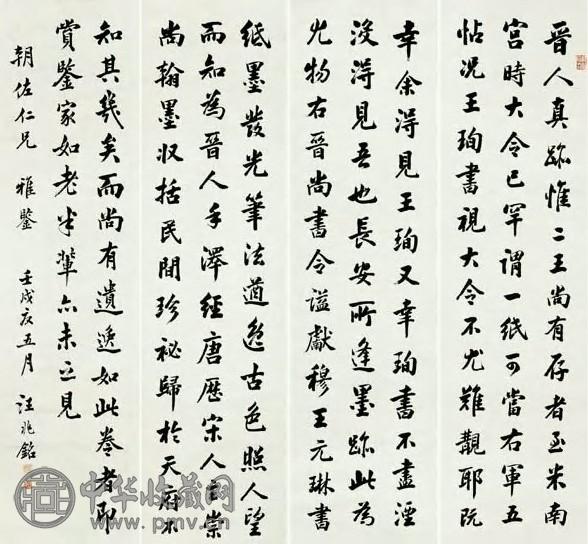 晉人真跡惟二王尚有存者至米南
宮時大令已罕謂一紙可當右軍五
帖況王珣書視大令不尤難覯耶既
幸余得見王珣又幸珣書不盡湮
沒得見吾也長安所逢墨跡此為
尤物右晉尚書令謚獻穆王元琳書
紙墨發光筆法遒逸古色照人望
而知為晉人手澤經唐歷宋人主崇
尚翰墨收括民間珍祕歸於天府不
知其幾矣而尚有遺逸如此卷者即
賞鑒家如老米輩亦未之見
朝佐仁兄 雅鑒 壬戌夏五月 汪兆銘
中华收藏网
www.pmv.cn